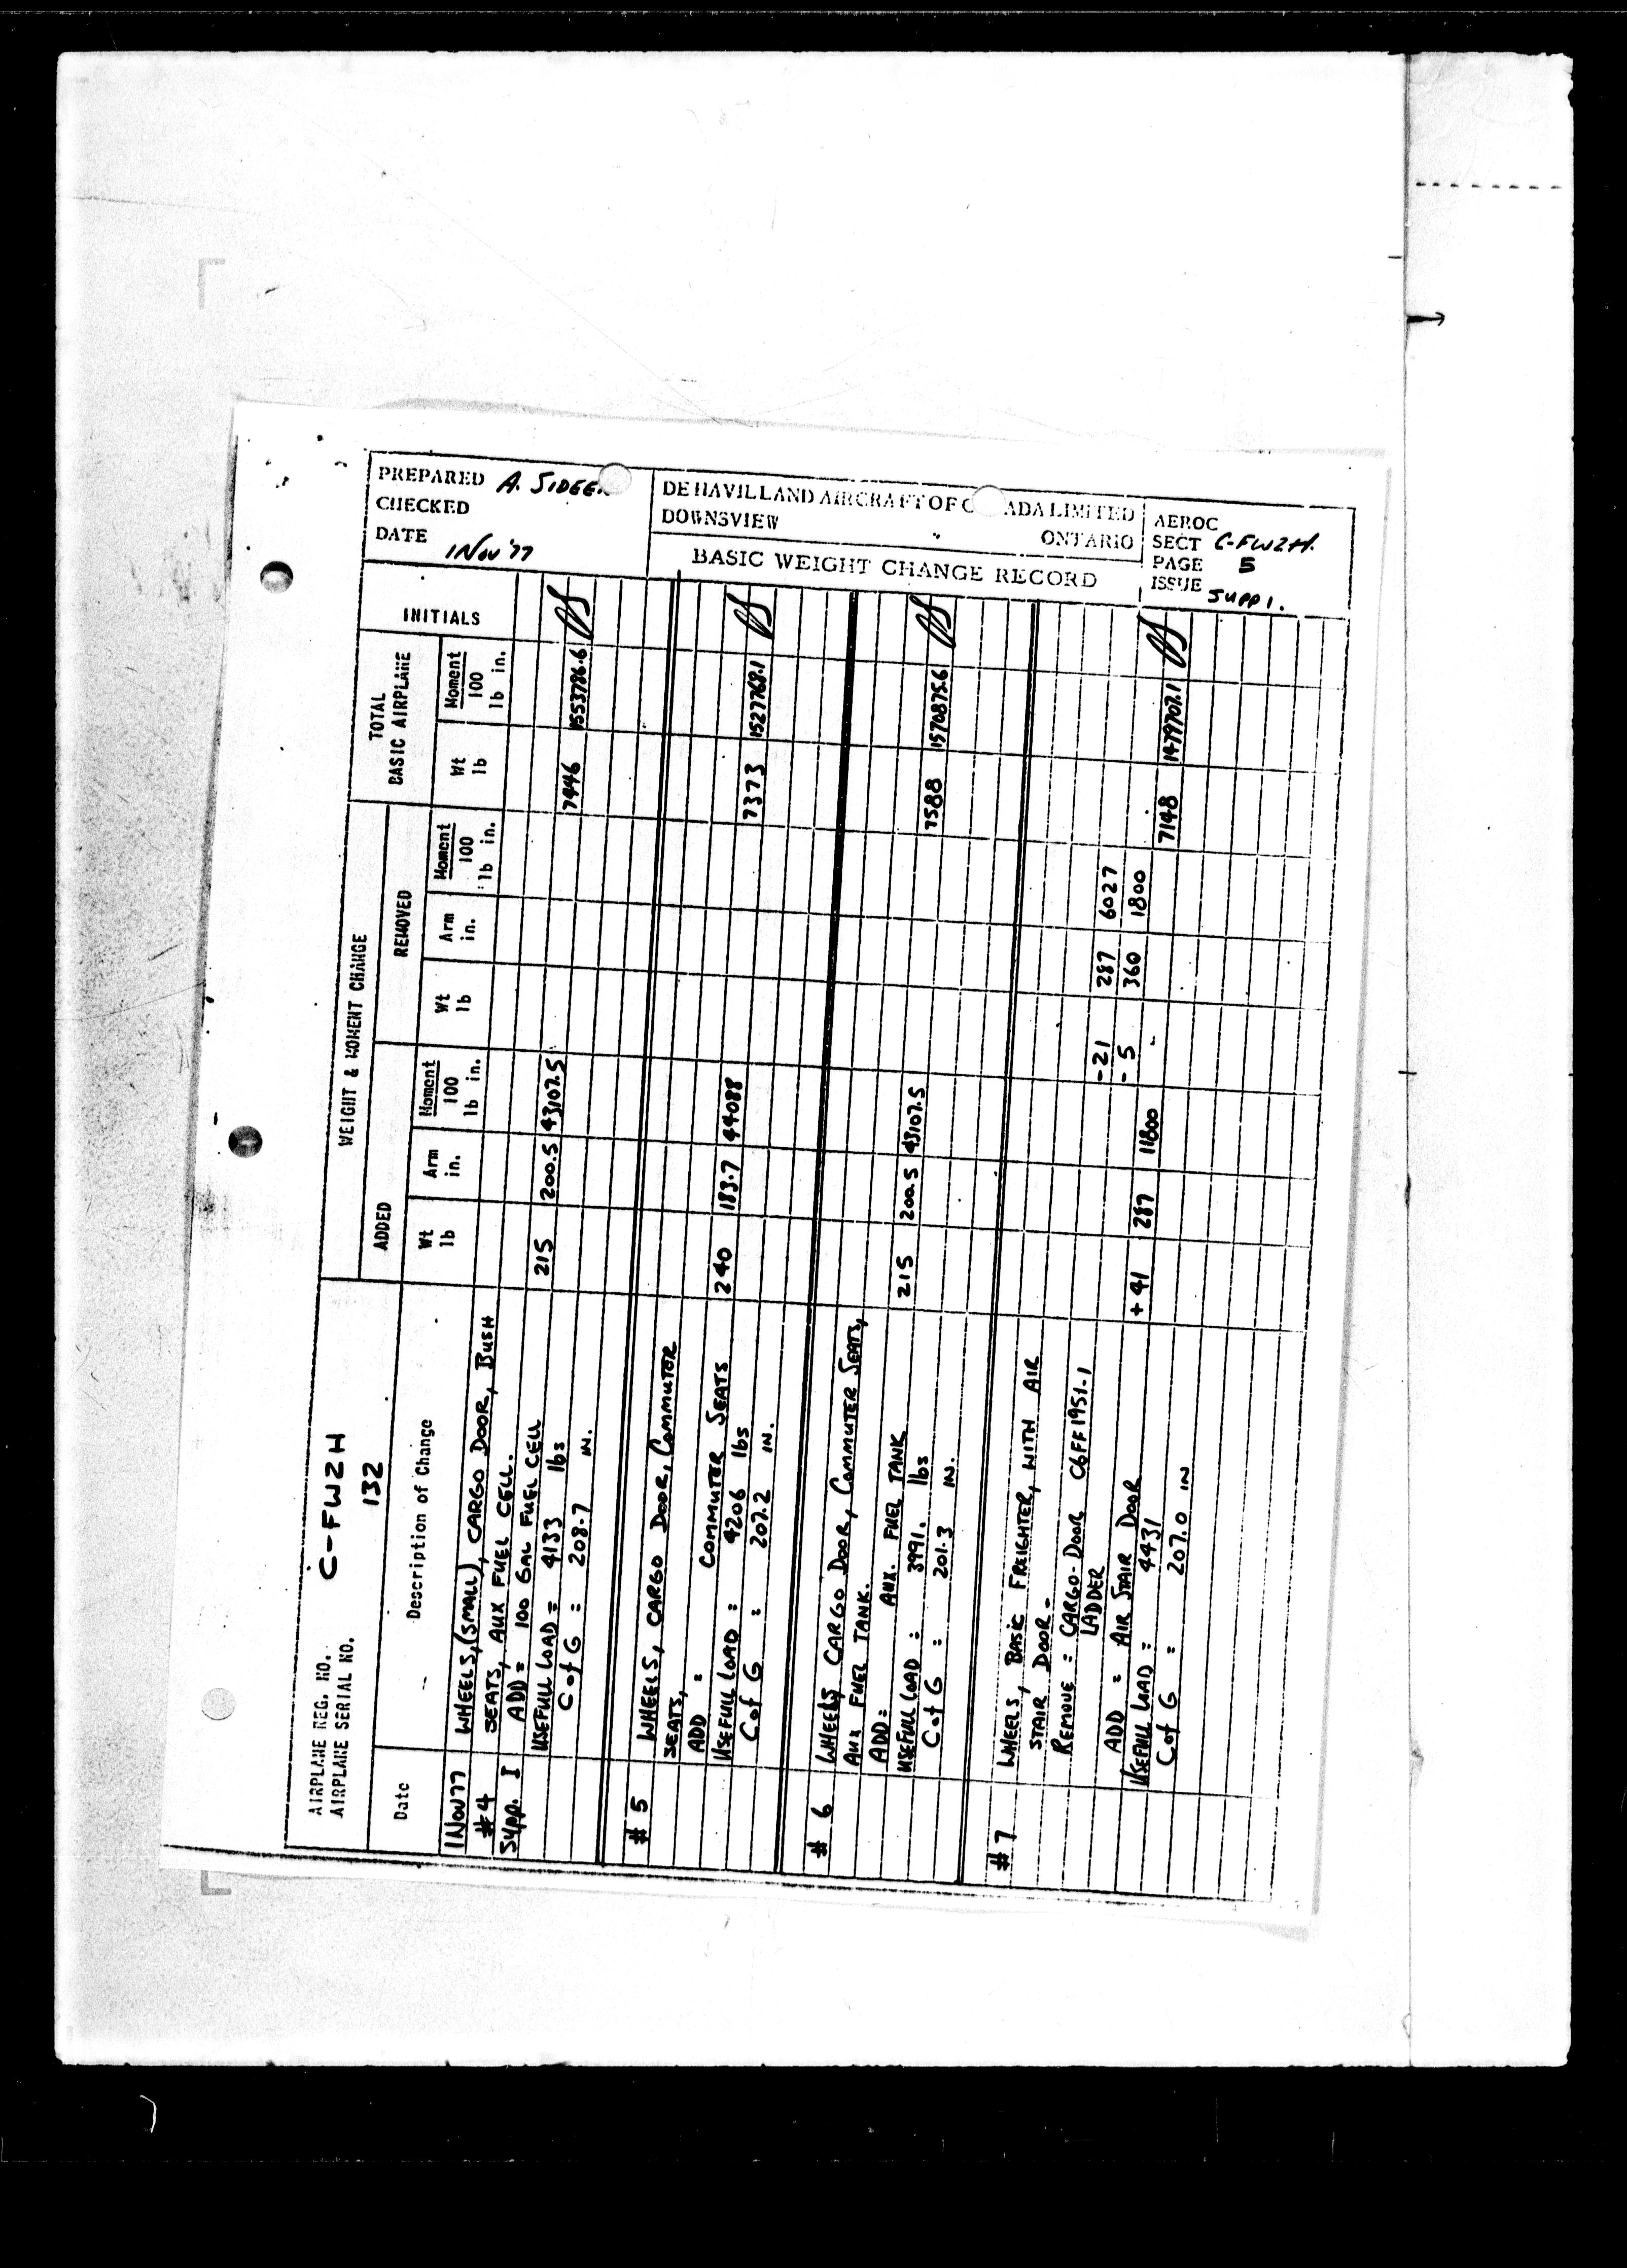 PREPARED A. SIDEE
CHECKED
DATE 1 Nov '77
DE HAVILLAND AIRCRAFT OF C ADA LIMITED
DOWNSVIEW ONTARIO
BASIC WEIGHT CHANGE RECORD
AEROC
SECT C-FWZH.
PAGE 5
ISSUE SUPP 1.
AIRPLANE REG. NO. C-FWZH
AIRPLANE SERIAL NO. 132
WEIGHT & MOMENT CHANGE
TOTAL BASIC AIRPLANE
INITIALS
ADDED
REMOVED
Date
Description of Change
Wt lb
Arm in.
Moment 100 lb in.
Wt lb
Arm in.
Moment 100 lb in.
Wt lb
Moment 100 lb in.
1 NOV 77 WHEELS, (SMALL), CARGO DOOR, BUSH
#4 SEATS, AUX FUEL CELL.
Supp. I ADD = 100 GAL FUEL CELL 215 200.5 43107.5
USEFULL LOAD = 4133 lbs 7446 1553786.6
C of G = 208.7 IN.
#5 WHEELS, CARGO DOOR, COMMUTER
SEATS,
ADD = COMMUTER SEATS 240 183.7 44088
USEFULL LOAD : 4206 lbs 7373 1527768.1
C of G : 207.2 IN.
#6 WHEELS CARGO DOOR, COMMUTER SEATS,
AUX FUEL TANK.
ADD = AUX. FUEL TANK 215 200.5 43107.5
USEFULL LOAD : 3991. lbs 7588 1570875.6
C of G : 201.3 IN.
#7 WHEELS, BASIC FREIGHTER, WITH AIR
STAIR DOOR -
REMOVE = CARGO-DOOR C6FF1951-1 -21 287 6027
LADDER -5 360 1800
ADD = AIR STAIR DOOR +41 287 11800
USEFULL LOAD = 4431 7148 1479707.1
C of G = 207.0 IN